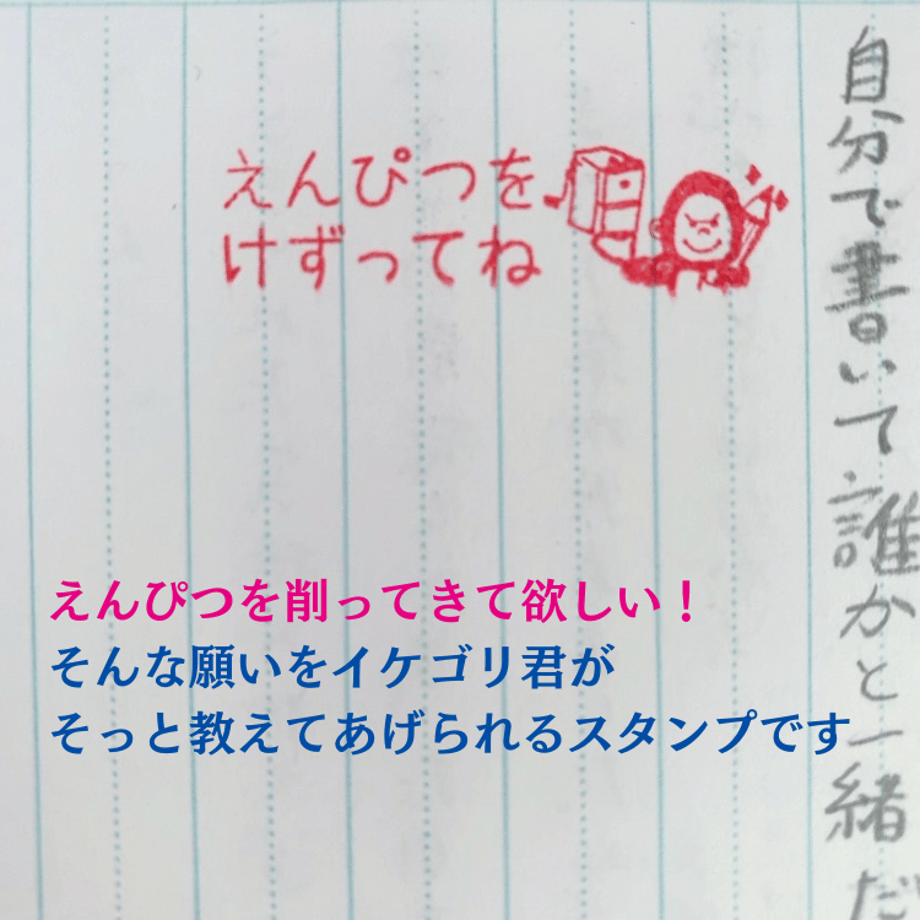 自分で書いて誰かと一緒だ
えんぴつを
けずってね
えんぴつを削ってきて欲しい！
そんな願いをイケゴリ君が
そっと教えてあげられるスタンプです